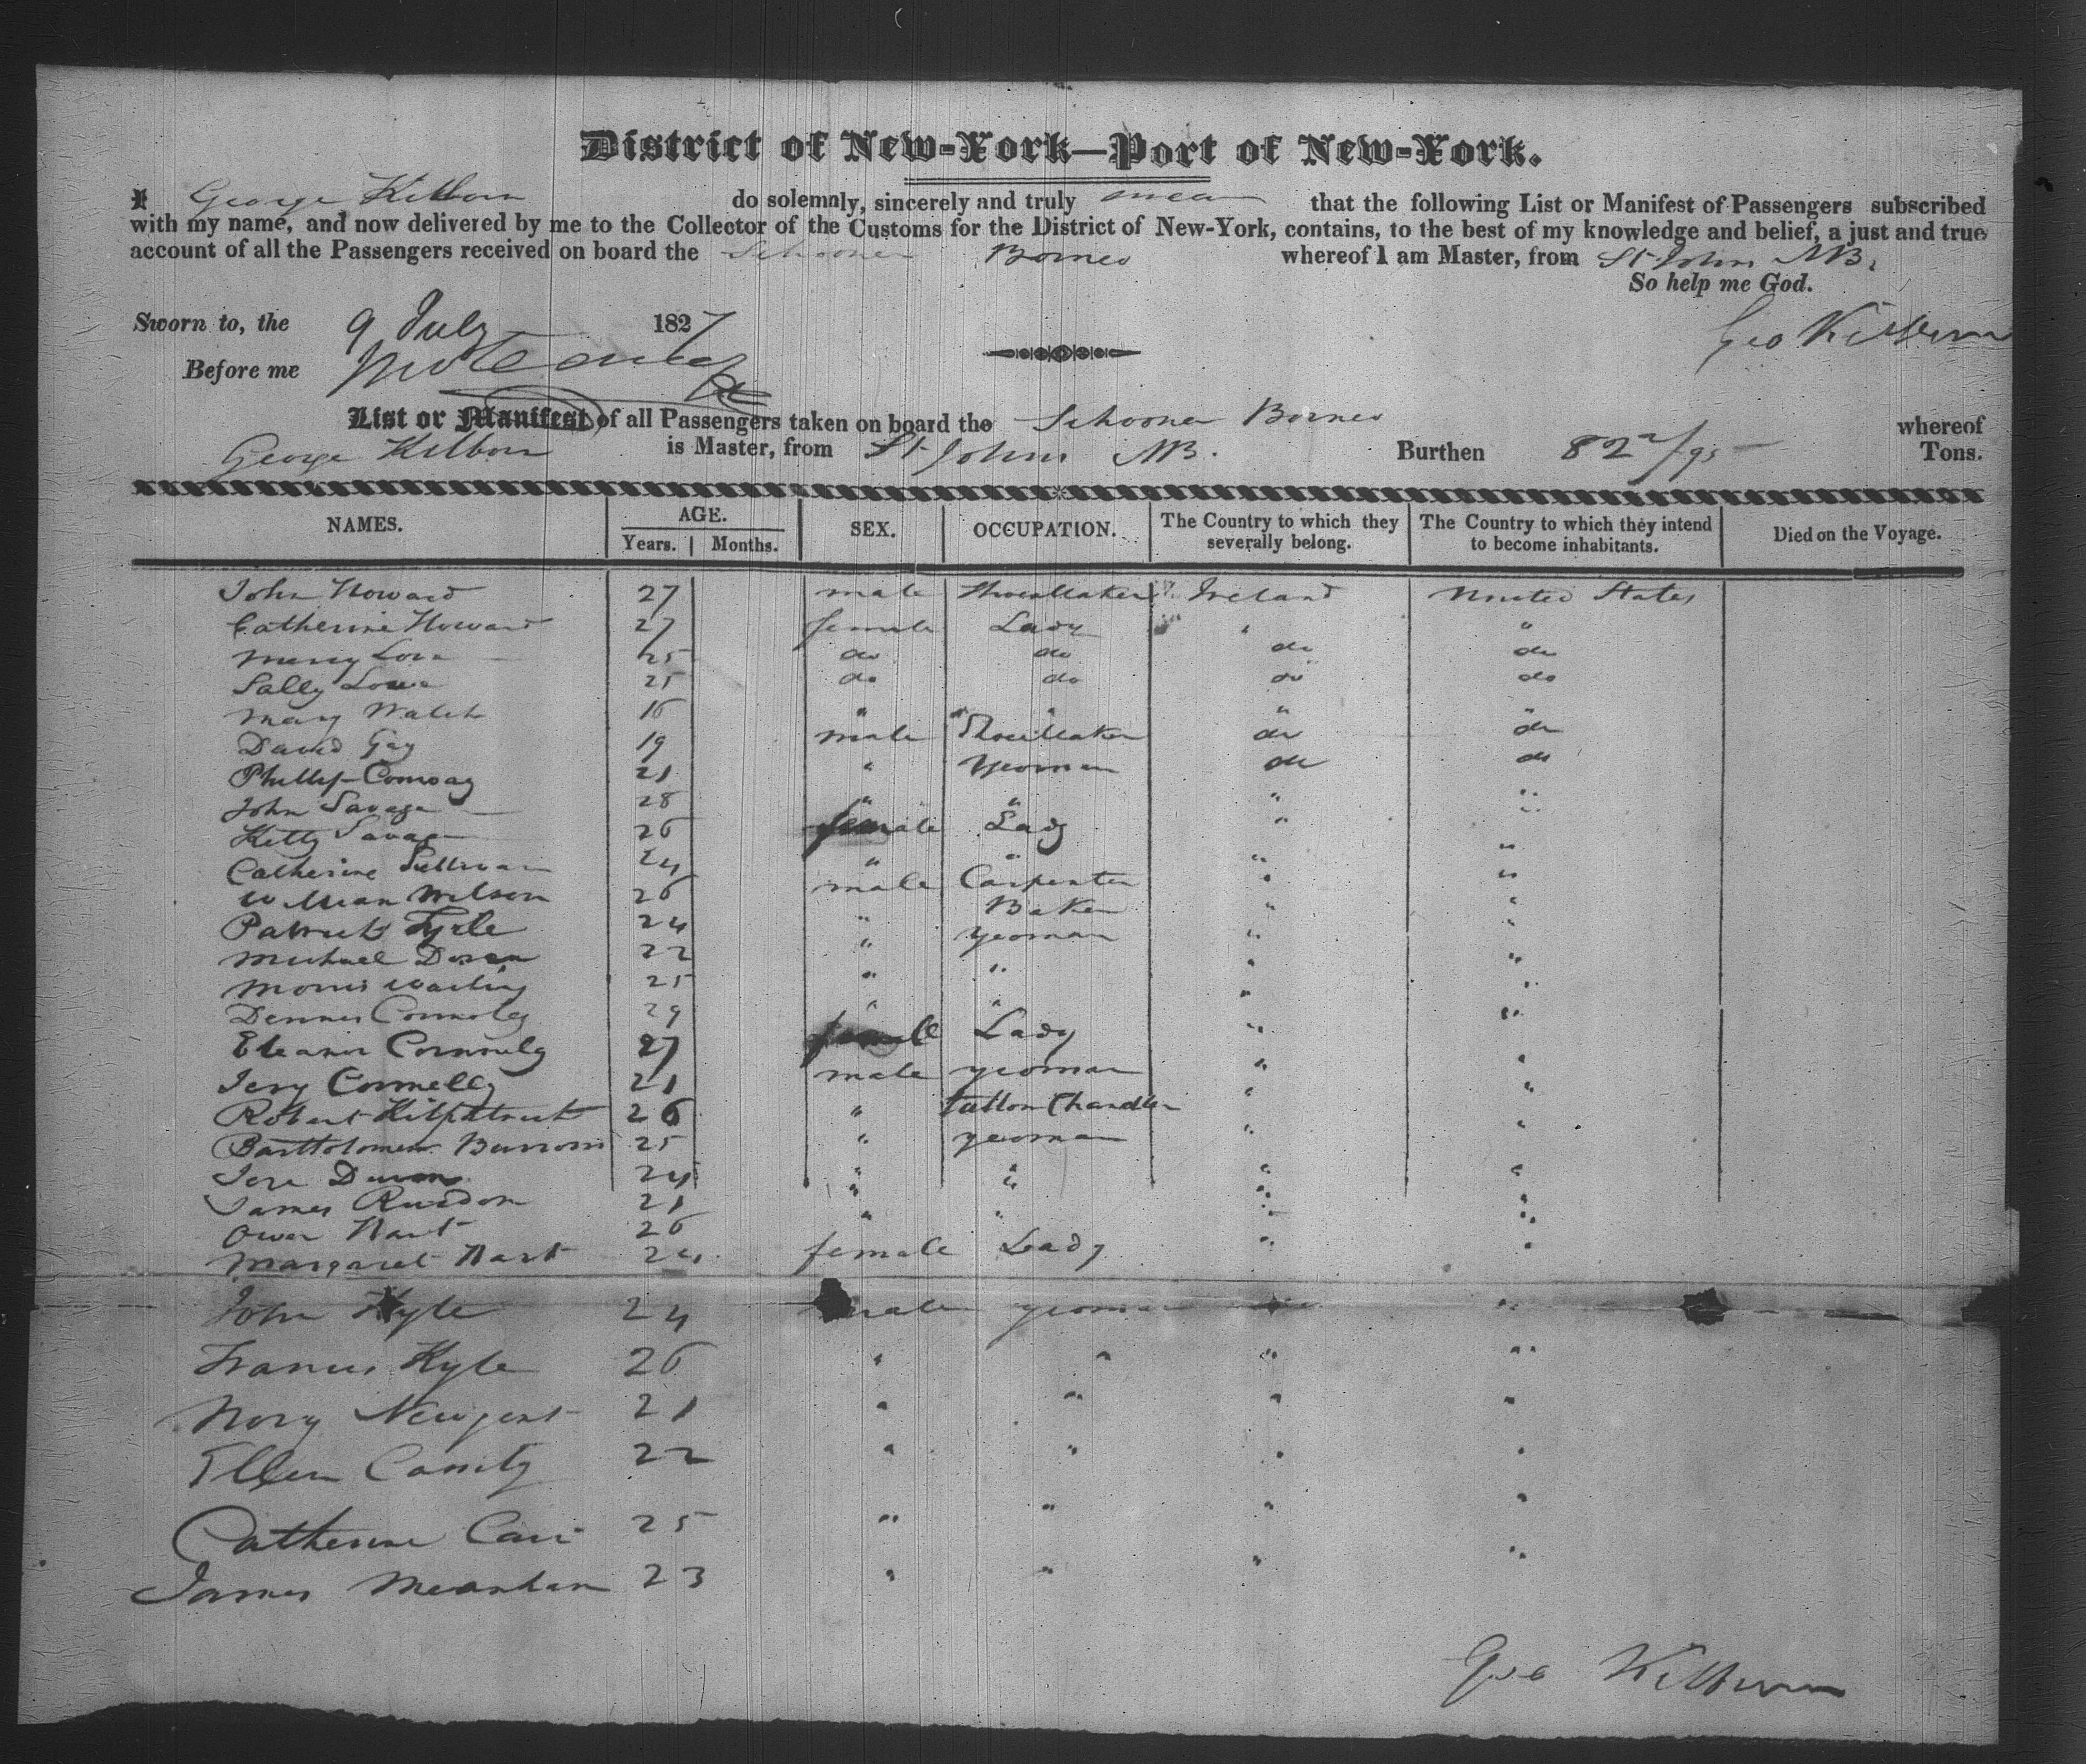 District of New-York—Port of New-York.
I George Kilborn do solemnly, sincerely and truly swear that the following List or Manifest of Passengers subscribed
with my name, and now delivered by me to the Collector of the Customs for the District of New-York, contains, to the best of my knowledge and belief, a just and true
account of all the Passengers received on board the Schooner Borneo whereof I am Master, from St John NB.
So help me God.
Sworn to, the 9 July 1827
Geo Kilborn
Before me
List or Manifest of all Passengers taken on board the Schooner Borneo whereof
George Kilborn is Master, from St Johns NB. Burthen 82 /95 Tons.
NAMES. AGE. SEX. OCCUPATION. The Country to which they severally belong. The Country to which they intend to become inhabitants. Died on the Voyage.
Years. Months.
John Howard 27 male ShoeMaker Ireland United States
Catherine Howard 27 female Lady " "
Mercy Love 25 do do do do
Sally Love 25 do do do do
Mary Walsh 16 " " " "
David Gay 19 male ShoeMaker do do
Phillip Conway 21 " Yeoman do do
John Savage 28 " " " "
Kitty Savage 26 female Lady " "
Catherine Sullivan 24 " " " "
William Wilson 26 male Carpenter " "
Patrick 24 Baker " "
Michael Doran 22 " yeoman " "
Morris 25 " " " "
Dennis Connoley 29 " " " "
Eleanor Connoly 27 female Lady " "
Jery Connelly 21 male yeoman " "
Robert Kilpatrick 26 " tallow Chandler " "
Bartholomew Burrows 25 " yeoman " "
Jere 24 " " " "
James 21 " " " "
Owen Hart 26 " " " "
Margaret Hart 24 female Lady " "
John Kyle 24 male yeoman " "
Francis Kyle 26 " " " "
Nory Newgent 21 " " " "
Ellen 22 " " " "
Catherine Carr 25 " " " "
James Meanhan 23 " " " "
Geo Kilborn